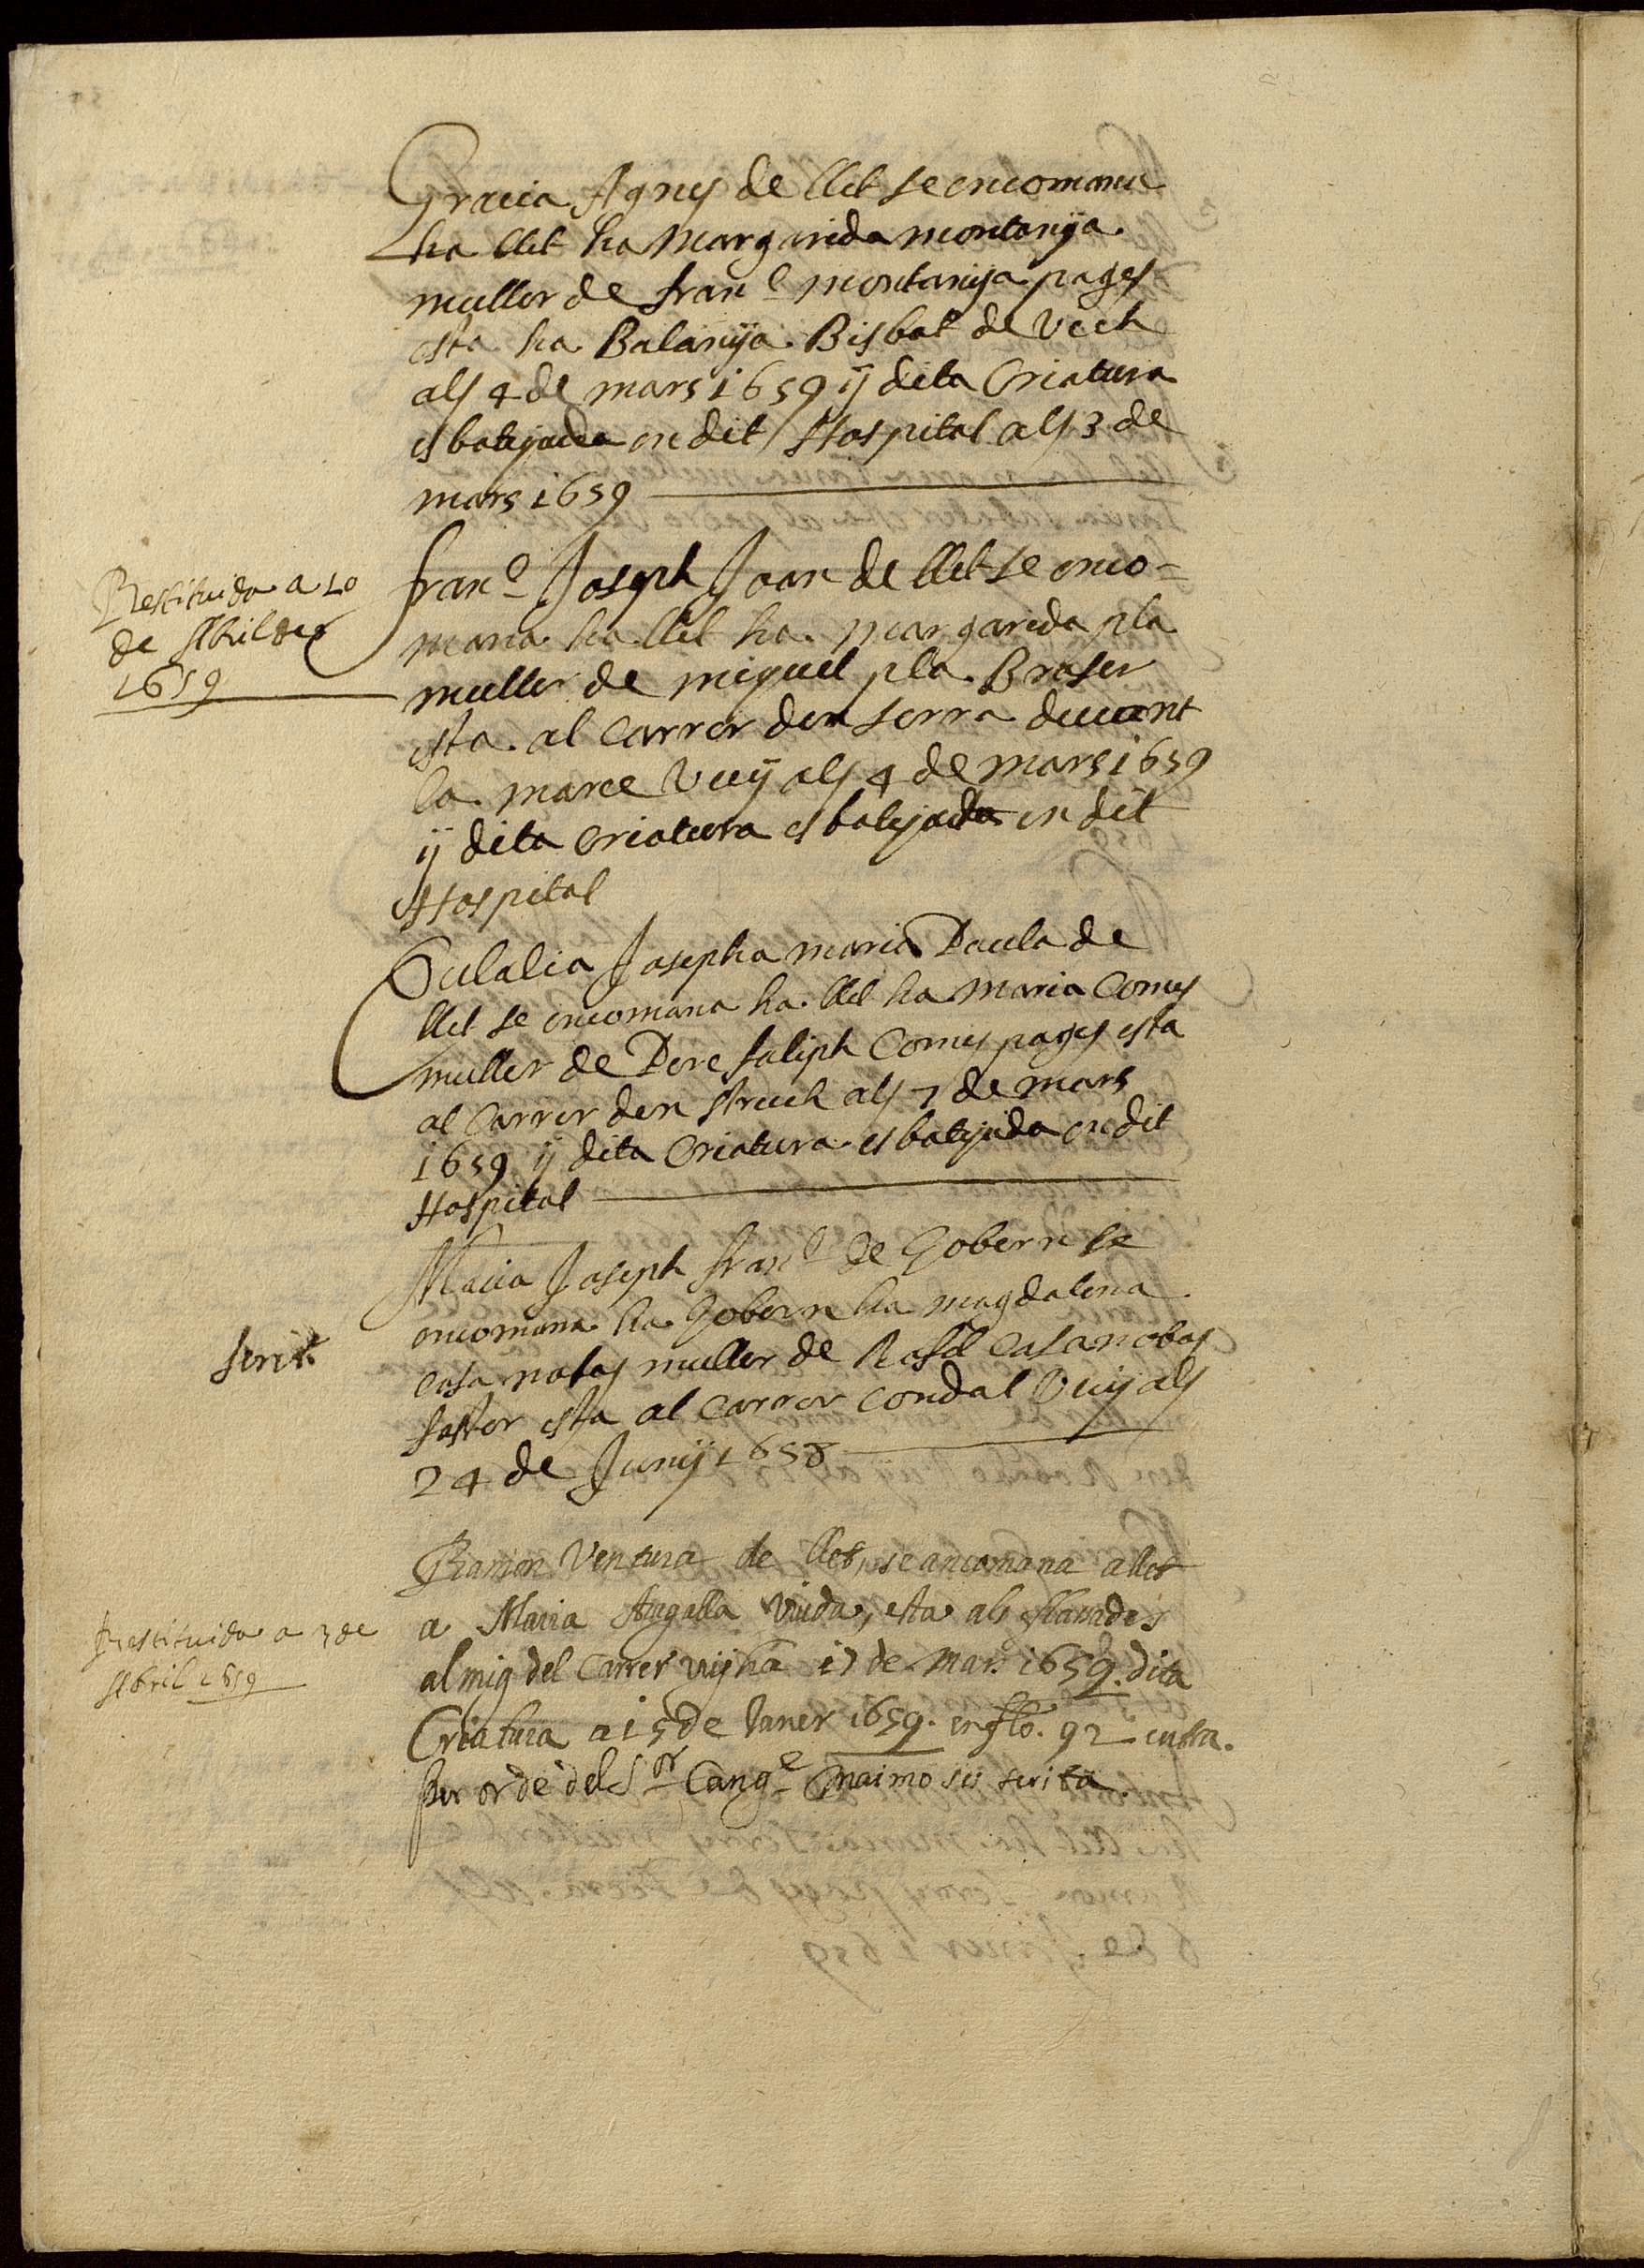 Gracia Agnes de llet se encomana
ha llet ha Margarida montanÿa
muller de Fran.co montanÿa pages
esta ha Balanÿa Bisbat de Vich
als 4 de mars 1659 ÿ dita Criatura
es batejada en dit Hospital als 3 de
mars 1659
Restituida a 20
de Abril de
1659
fran.co Joseph Joan de llet se enco=
mana ha llet ha margarida pla
muller de miquel pla Braser
esta al carrer den serra devant
la merce Vuÿ als 4 de mars 1659
ÿ dita criatura es batejada en dit
Hospital
Eulalia Josepha maria Paula de
llet se encomana ha llet ha Maria Comes
muller de Pere feliph Comes pages esta
al Carrer den struch als 7 de mars
1659 ÿ dita Criatura es batejada en dit
Hospital
scrit
Maria Joseph fran.ca de Gobern se
encomana ha Gobern ha magdalena
casanobas muller de Rafel Casanobas
sastor esta al carrer condal Vuÿ als
24 de Junÿ 1658
Restituida a 3 de
Abril 1659
Ramon Ventura de llet, se ancomana a llet
a Maria viuda, esta als flasades
al mig del carrer vuÿ ha 17 de Mars 1659. dita
Criatura a 15 de Janer 1659. en flo. 92
Per orde del S.or Cang.e Maimo sis scrita